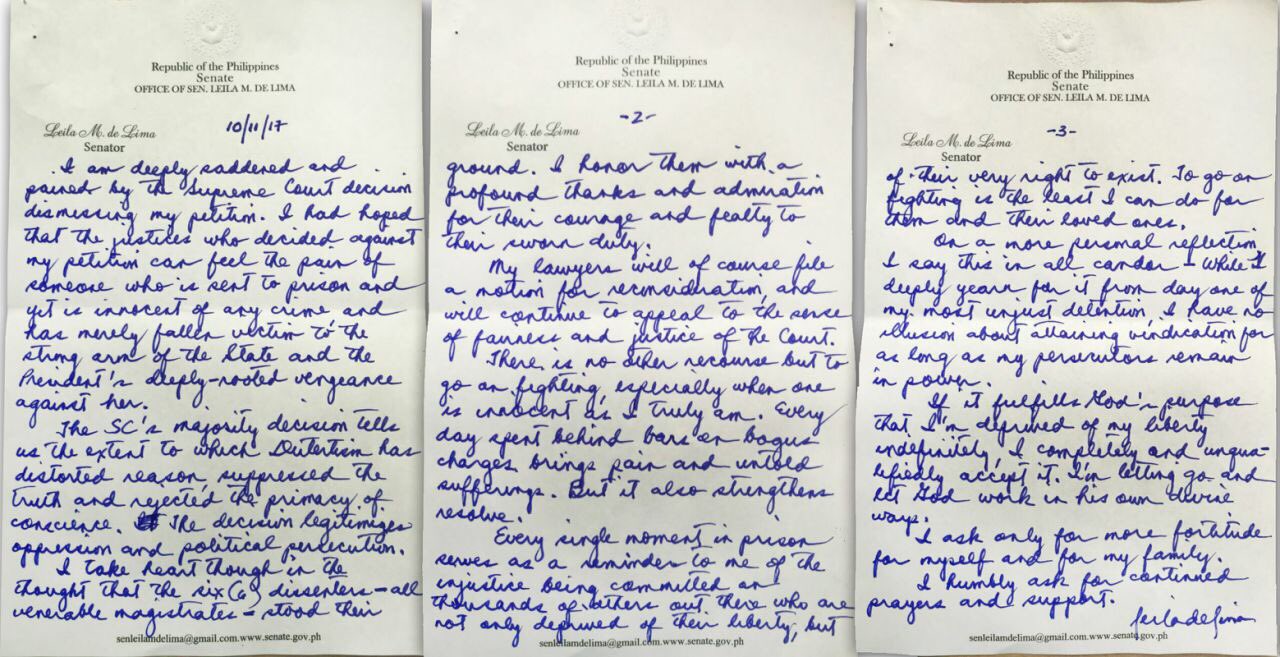 Republic of the Philippines
Senate
OFFICE OF SEN. LEILA M. DE LIMA
Leila M. de Lima
Senator
10/11/17
I am deeply saddened and
pained by the Supreme Court decision
dismissing my petition. I had hoped
that the justices who decided against
my petition can feel the pain of
someone who is sent to prison and
yet is innocent of any crime and
has merely fallen victim to the
strong arm of the State and the
President's deeply-rooted vengeance
against her.
The SC's majority decision tells
us the extent to which Dutertism has
distorted reason, suppressed the
truth and rejected the primacy of
conscience. The decision legitimizes
oppression and political persecution.
I take heart though in the
thought that the six (6) dissenters – all
venerable magistrates – stood their
senleilamdelima@gmail.com.www.senate.gov.ph
Republic of the Philippines
Senate
OFFICE OF SEN. LEILA M. DE LIMA
Leila M. de Lima
Senator
-2-
ground. I honor them with a
profound thanks and admiration
for their courage and fealty to
their sworn duty.
My lawyers will of course file
a motion for reconsideration, and
will continue to appeal to the sense
of fairness and justice of the Court.
There is no other recourse but to
go on fighting, especially when one
is innocent as I truly am. Every
day spent behind bars on bogus
charges brings pain and untold
sufferings. But it also strengthens
resolve.
Every single moment in prison
serves as a reminder to me of the
injustice being committed on
thousands of others out there who are
not only deprived of their liberty, but
senleilamdelima@gmail.com.www.senate.gov.ph
Republic of the Philippines
Senate
OFFICE OF SEN. LEILA M. DE LIMA
Leila M. de Lima
Senator
-3-
of their very right to exist. To go on
fighting is the least I can do for
them and their loved ones.
On a more personal reflection,
I say this in all candor – While I
deeply yearn for it from day one of
my most unjust detention, I have no
illusion about attaining vindication for
as long as my persecutors remain
in power.
If it fulfills God's purpose
that I'm deprived of my liberty
indefinitely, I completely and unqua-
lifiedly accept it. I'm letting go and
let God work in his own divine
ways.
I ask only for more fortitude
for myself and for my family.
I humbly ask for continued
prayers and support.
Leila de Lima
senleilamdelima@gmail.com.www.senate.gov.ph